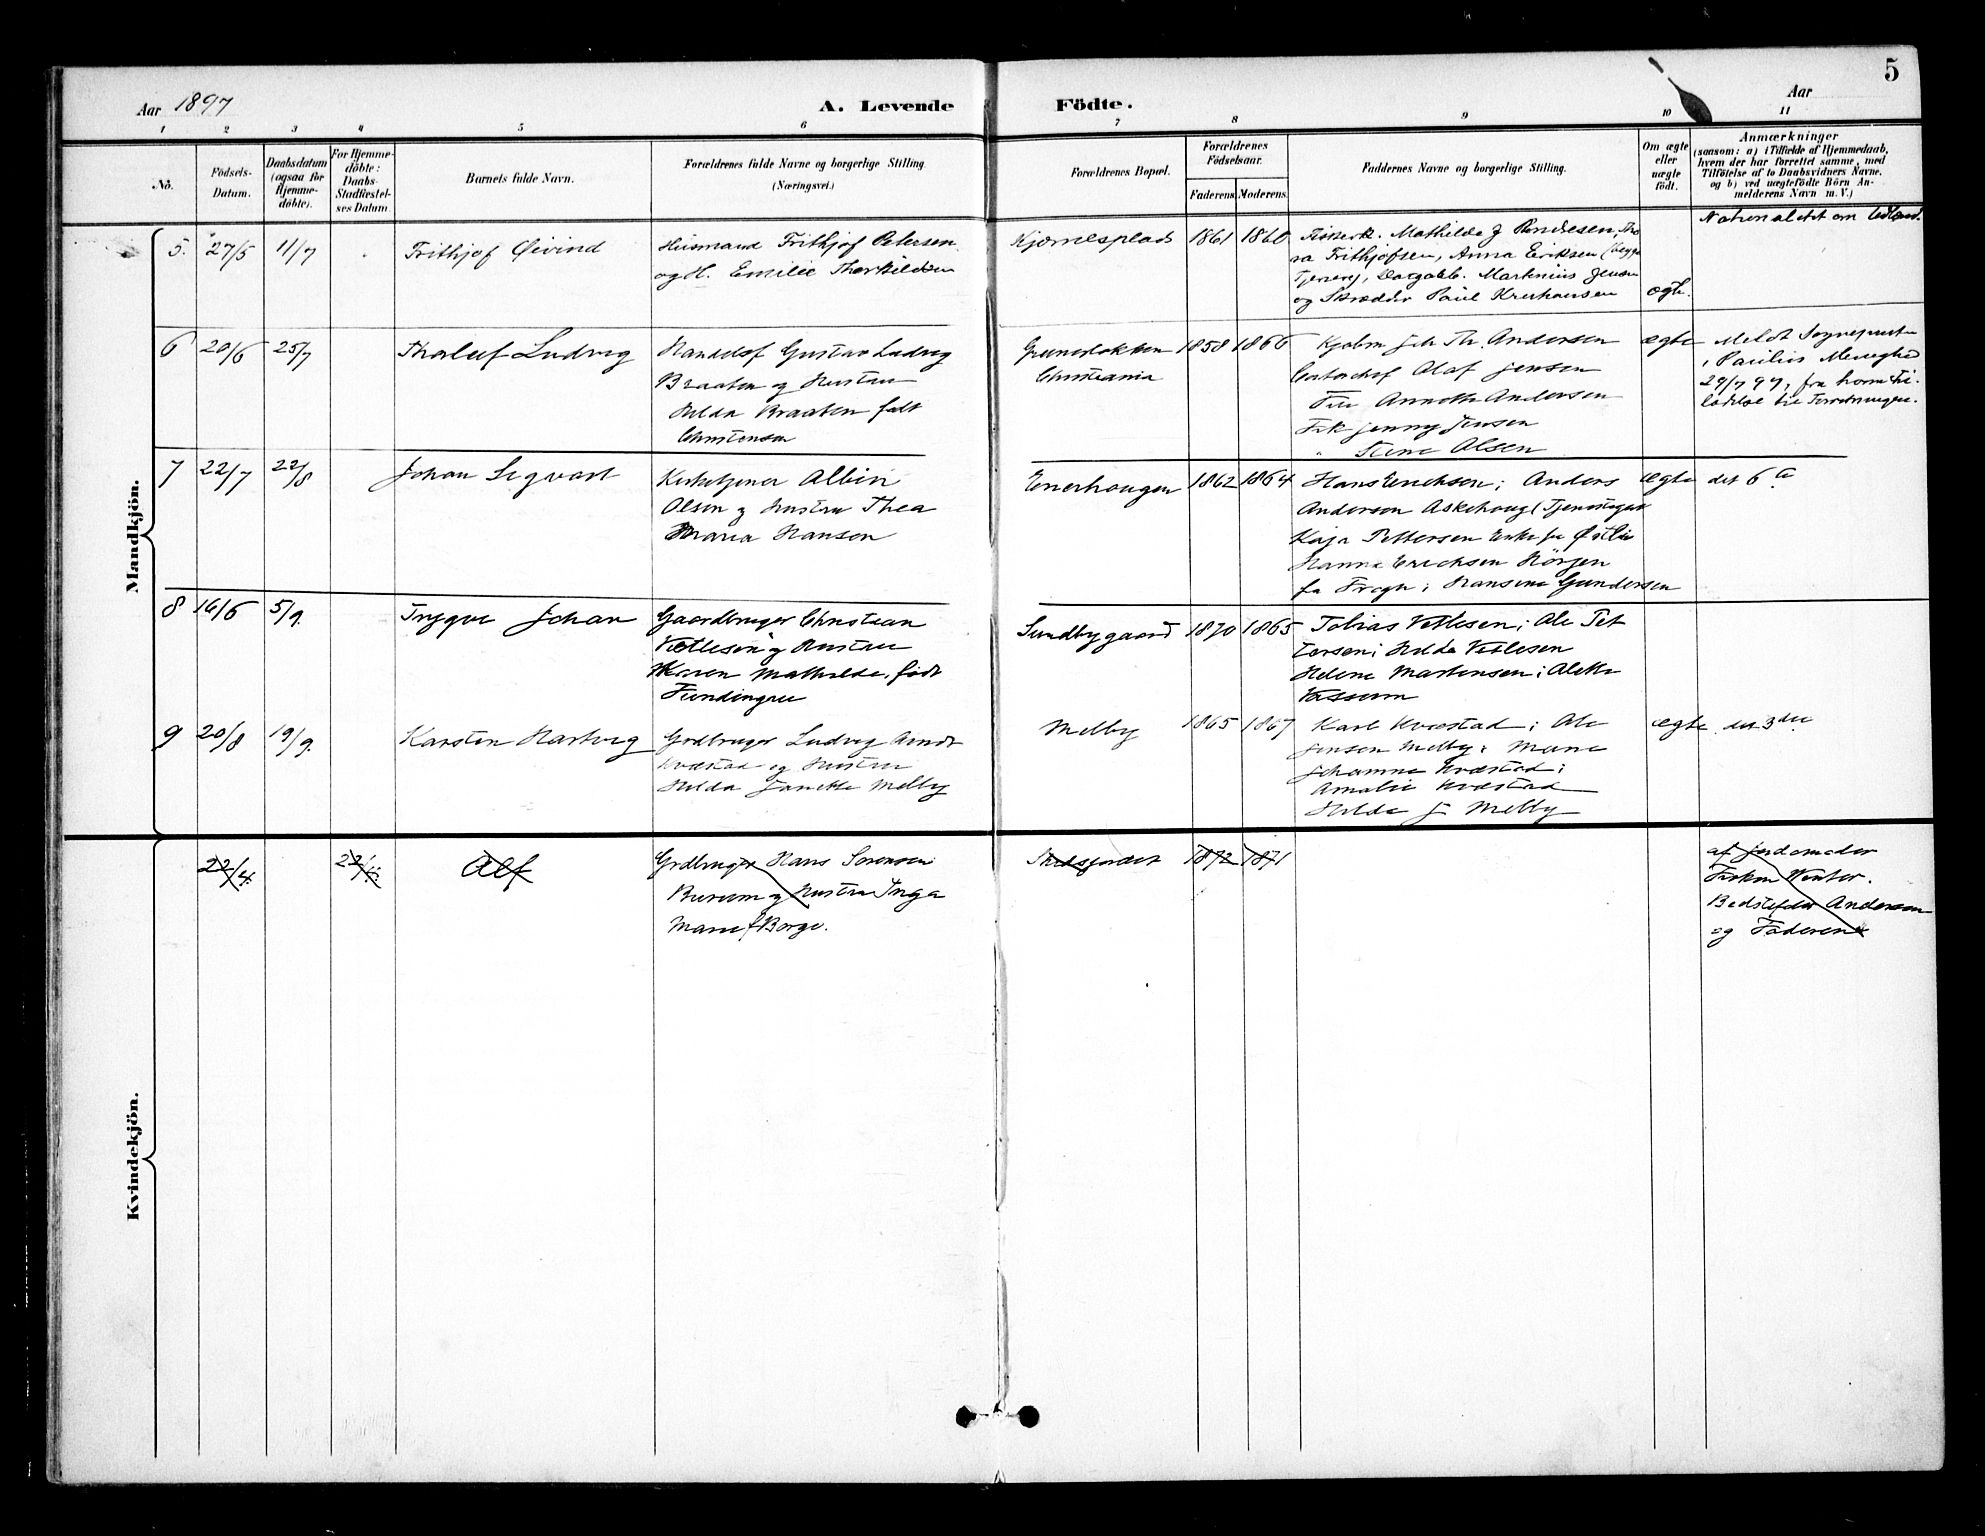 5
Aar 1897
A. Levende Födte.
Aar
1 2 3 4 5 6 7 8 9 10 11
No.
Födsels-Datum.
Daabsdatum (ogsaa for Hjemme-döbte).
For Hjemme-döbte: Daabs-Stadfæstel-ses Datum.
Barnets fulde Navn.
Forældrenes fulde Navne og borgerlige Stilling.
(Næringsvei.)
Forældrenes Bopæl.
Forældrenes Födselsaar.
Faderens. Moderens.
Faddernes Navne og borgerlige Stilling.
Om ægte eller uægte födt.
Anmærkninger
(saasom: a) i Tilfælde af Hjemmedaab, hvem der har forrettet samme, med Tilföielse af to Daabsvidners Navne, og b) ved uægtefödte Börn An-melderens Navn m. V.)
Mandkjön.
5. 27/5 11/7 Frithjof Øivind
Husmand Frithjof Petersen
og H. Emilie Therkildsen
Kjærnesplads 1861 1860
Mathilde J
Frithjofsen, Anna Eriksen
Marknius Jensen
og Skrædder Paul
ægte.
6 20/6 25/7 Thoralf Ludvig
Gustav Ludvig
Braaten og Hustru
Hulda Braaten født
Christensen
Grünerløkken 1858 1866
Christiania
Joh Th. Andersen
Olaf Jensen
Fru Annette Andersen
Frk Jenny Jensen
Olsen
ægte
Meldt Sognepresten
i Paulus Menighed
29/7 97, fra ham
7 22/7 22/8 Johan Sigvart
Kirketjener Albin
Olsen og Hustru Thea
Maria Hansen
Enerhougen 1862 1864
Hans Erichsen; Anders
Andersen Askehoug (Tjenstegut
Kaja Pettersen Enke fra Østlie
Hanna Erichsen
fra Frogn; Hansine Gundersen
ægte det 6
8 16/6 5/9. Trygve Johan
Gaardbruger Christian
Vetlesen og Hustru
Karen Mathilde, født
Fundingrue
Sundbygaard 1870 1865
Tobias Vetlesen; Ole Pet
tersen; Hilda Vetlesen
Helene Martensen; Alette
Vassum
9 20/8 19/9. Karsten Hartvig
Grdbruger Ludvig Arndt
Kvæstad og Hustru
Hilda Janette Melby
Melby 1865 1867
Karl Kvæstad; Ole
Jensen Melby; Marie
Johanne Kvæstad;
Amalie Kvæstad
Hilda J Melby
ægte. det 3die
Kvindekjön.
22/4. Alf
Grdbruger Hans Sørensen
Burum og Hustru Inga
Marie f Borge.
1872 1871
af Jordemoder
Frøken Winter.
Bedstefar Andersen
og Faderen